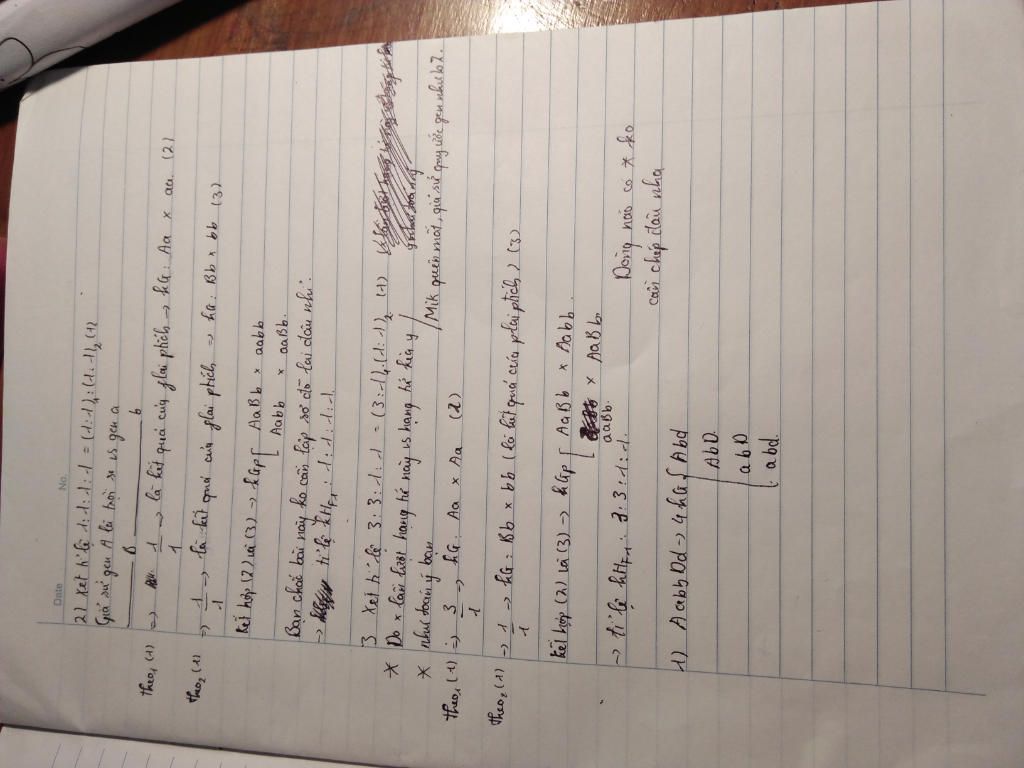 Date
No.
2) Xét tỉ lệ 1:1:1:1 = (1:1)₁:(1:1)₂ (1)
Giả sử gen A là trội so vs gen a
B b
Theo₁ (1) => 1/1 -> là kết quả của phai ptích -> KG: Aa x aa (2)
Theo₂ (1) => 1/1 -> là kết quả của phai ptích -> KG: Bb x bb (3)
Kết hợp (2) và (3) -> KGp [ AaBb x aabb
Aabb x aaBb.
Bạn chắc bài này ko cần lập sơ đồ lai đâu nhỉ.
-> tỉ lệ KHF₁: 1:1:1:1
3 Xét tỉ lệ 3:3:1:1 = (3:1)₁(1:1)₂ (1)
* Do x lần lượt hạng tử này vs hạng tử kia y
* như toán ý bạn / Mik quên mất, giả sử quy ước gen như b2.
Theo₁ (1) => 3/1 -> KG: Aa x Aa (2)
Theo₂ (1) -> 1/1 -> KG: Bb x bb (là kết quả của phai ptích) (3)
Kết hợp (2) và (3) -> KGp [ AaBb x Aabb.
aaBb. x AaBb.
-> tỉ lệ KHF₁: 3:3:1:1.
Dòng nào có * ko
cần chép đâu nha
1) AabbDd -> 4 KG { Abd
AbD.
abD
abd